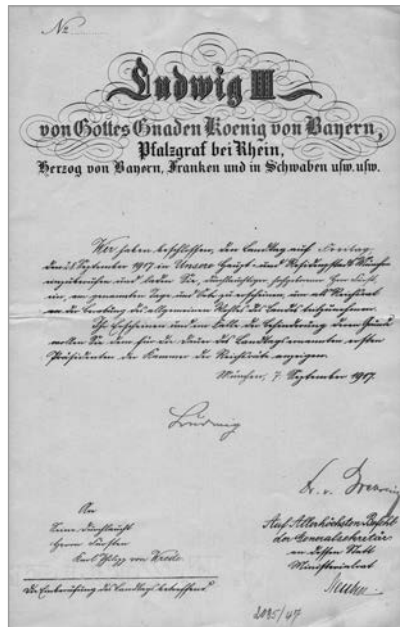 No
Ludwig III
von Gottes Gnaden Koenig von Bayern,
Pfalzgraf bei Rhein,
Herzog von Bayern, Franken und in Schwaben usw. usw.
Wir haben beschlossen, den Landtag auf Freitag,
den 28. September 1917 in Unsere Haupt- und Residenzstadt München
einzuberufen und laden Sie, durchlauchtiger hochgeborner Herr Fürst,
ein, am genannten Tage und Orte zu erscheinen, um als Reichsrat
an der Beratung des allgemeinen Wohles des Landes teilzunehmen.
Ihr Erscheinen und im Falle der Behinderung deren Grund
wollen Sie dem für die Dauer des Landtags ernannten ersten
Präsidenten der Kammer der Reichsräte anzeigen.
München, 7. September 1917.
Ludwig
An
Seine Durchlaucht
Herrn Fürsten
Karl Philipp von Wrede.
Auf Allerhöchsten Befehl
der Generalsekretär
an dessen Statt
Ministerialrat
Die Einberufung des Landtags betreffend.
2085/47